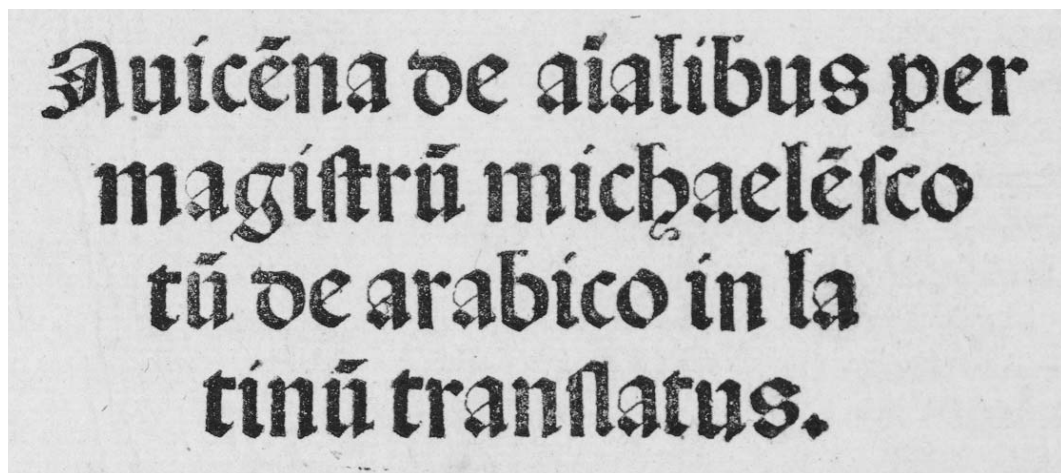 Auicēna de aīalibus per
magiſtrū michaelēſco
tū de arabico in la
tinū tranſlatus.